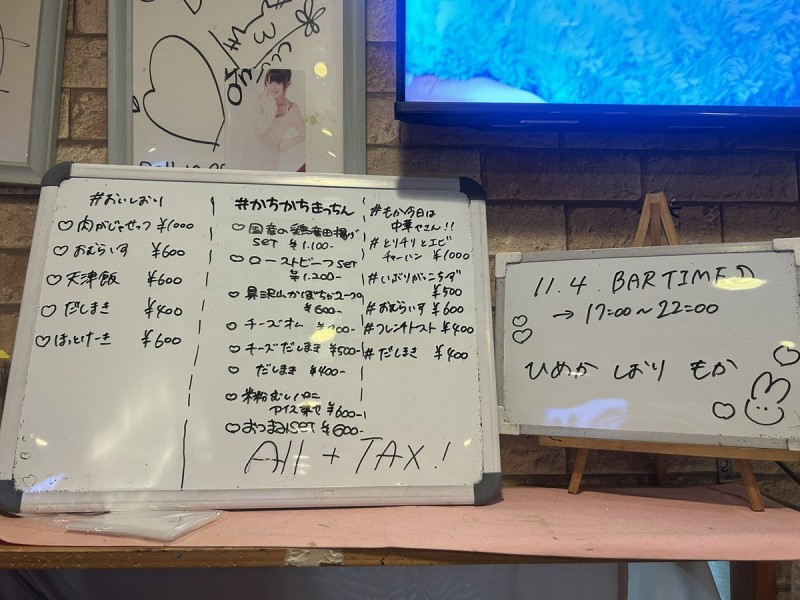 #おいしおり
♡ 肉がじゃセッフ ¥1000
♡ おむらいす ¥600
♡ 天津飯 ¥600
♡ だしまき ¥400
♡ ほっとけーき ¥600
#かちかちきっちん
♡ 国産の鶏竜田揚げ
SET ¥1.100-
♡ ローストビーフSET
¥1.200-
♡ 沢山かぼちゃスープ
¥600-
♡ チーズオム
♡ チーズだしまき ¥500-
♡ だしまき ¥400-
♡ 米粉むしパン
アイス ¥600-
♡ おつまみSET ¥600-
#もか今日は
中華やさん!!
#とりチリとエビ
チャーハン ¥1000
#いぶりがっこチーズ
¥500
#おむらいす ¥600
#フレンチトースト ¥400
#だしまき ¥400
All + TAX!
11.4. BAR TIME
→ 17:00~22:00
ひめか しおり もか